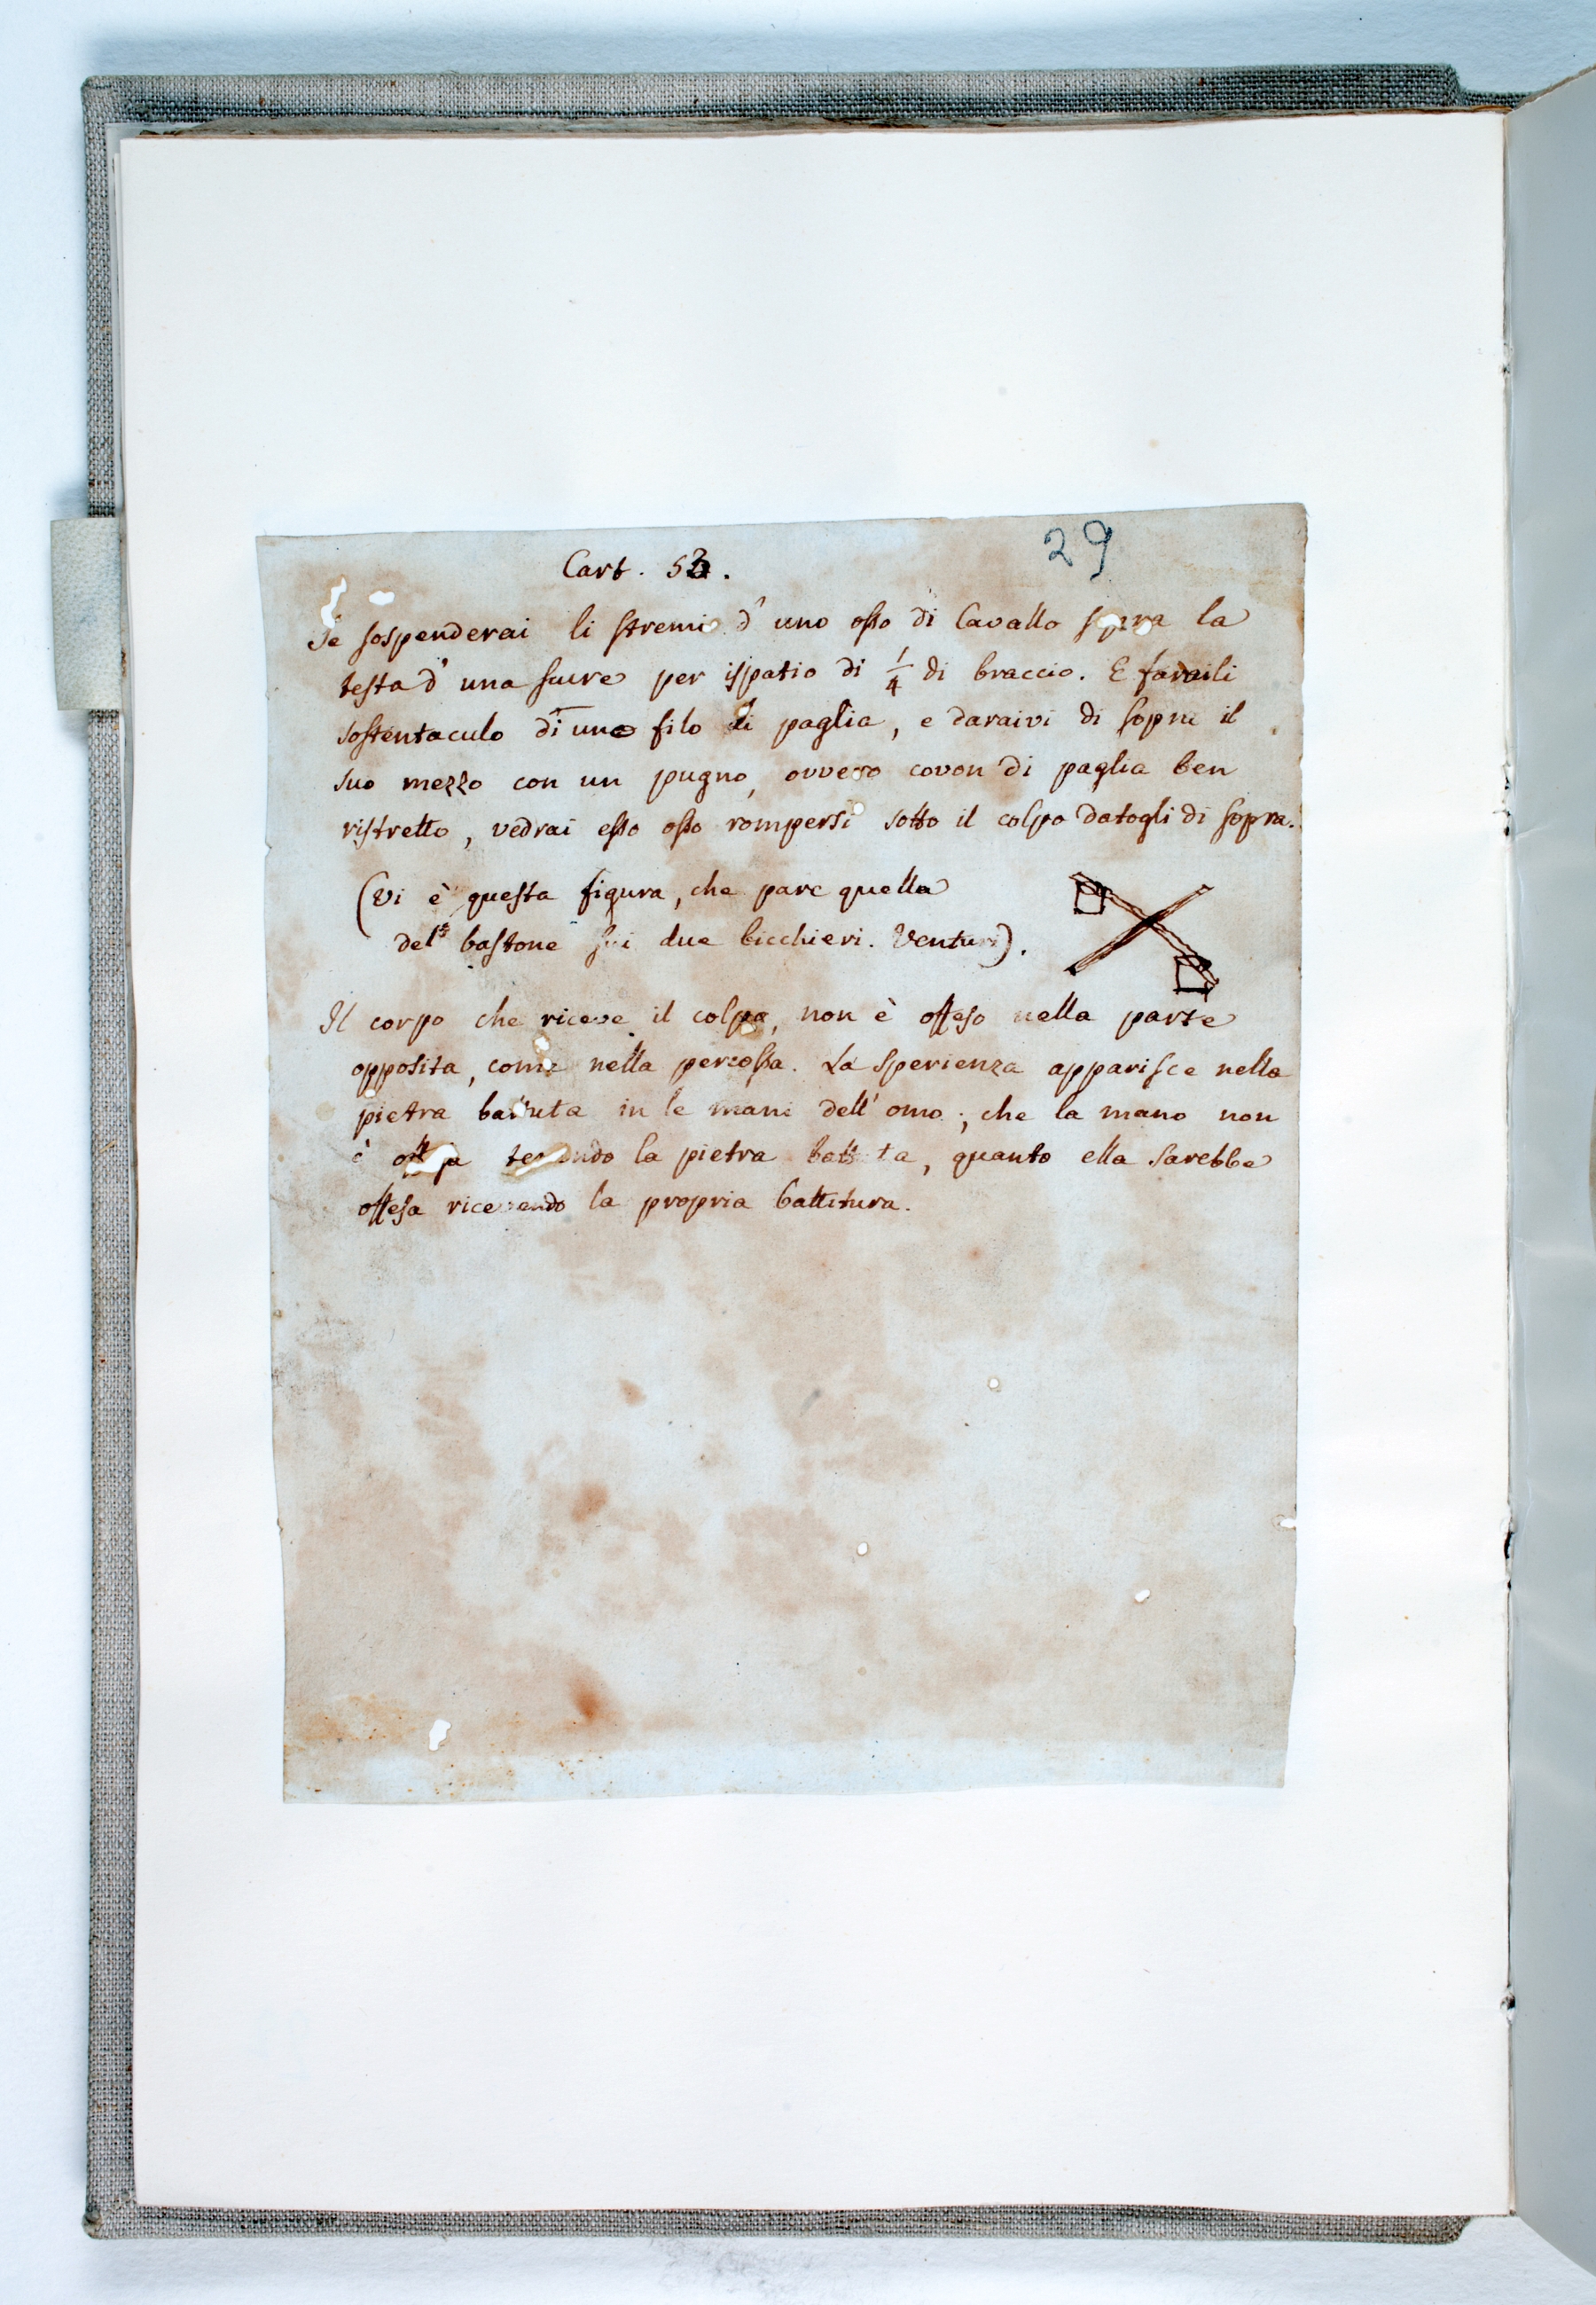 29
Cart. 53.
Se sospenderai li stremi d'uno osso di Cavallo sopra la
testa d'una sucre per ispatio di 1/4 di braccio. E faraili
sostentaculo di uno filo di paglia, e daraivi di sopra il
suo mezzo con un pugno, ovvero covon di paglia ben
ristretto, vedrai esso osso rompersi sotto il colpo datogli di sopra.
(Vi è questa figura, che pare quella
del bastone sui due bicchieri. Venturi).
Il corpo che riceve il colpo, non è offeso nella parte
opposita, come nella percossa. La sperienza apparisce nella
pietra battuta in le mani dell'omo; che la mano non
è offesa tenendo la pietra battuta, quanto ella sarebbe
offesa ricevendo la propria battitura.